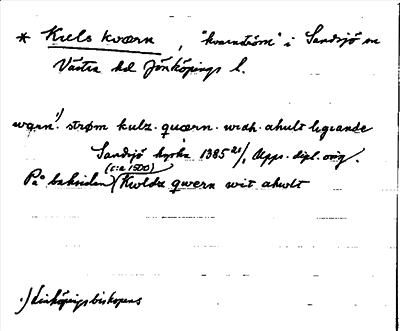 * Kuls kværn, "kvarnström" i Sandsjö sn
Västra hd Jönköpings l.
wgen¹⁾ strøm kulz. quærn. widh. ahult ligiande
Sandsjö kyrka 1385 21/1 Upps. dipl. orig.
(c:a 1500)
På baksidan Kwldz qwern wit ahwlt
1) Linköpingsbiskopens